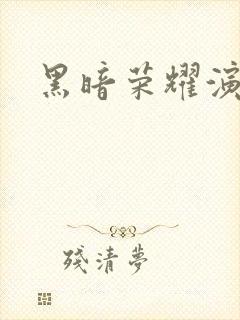 黑暗荣耀演
残清夢